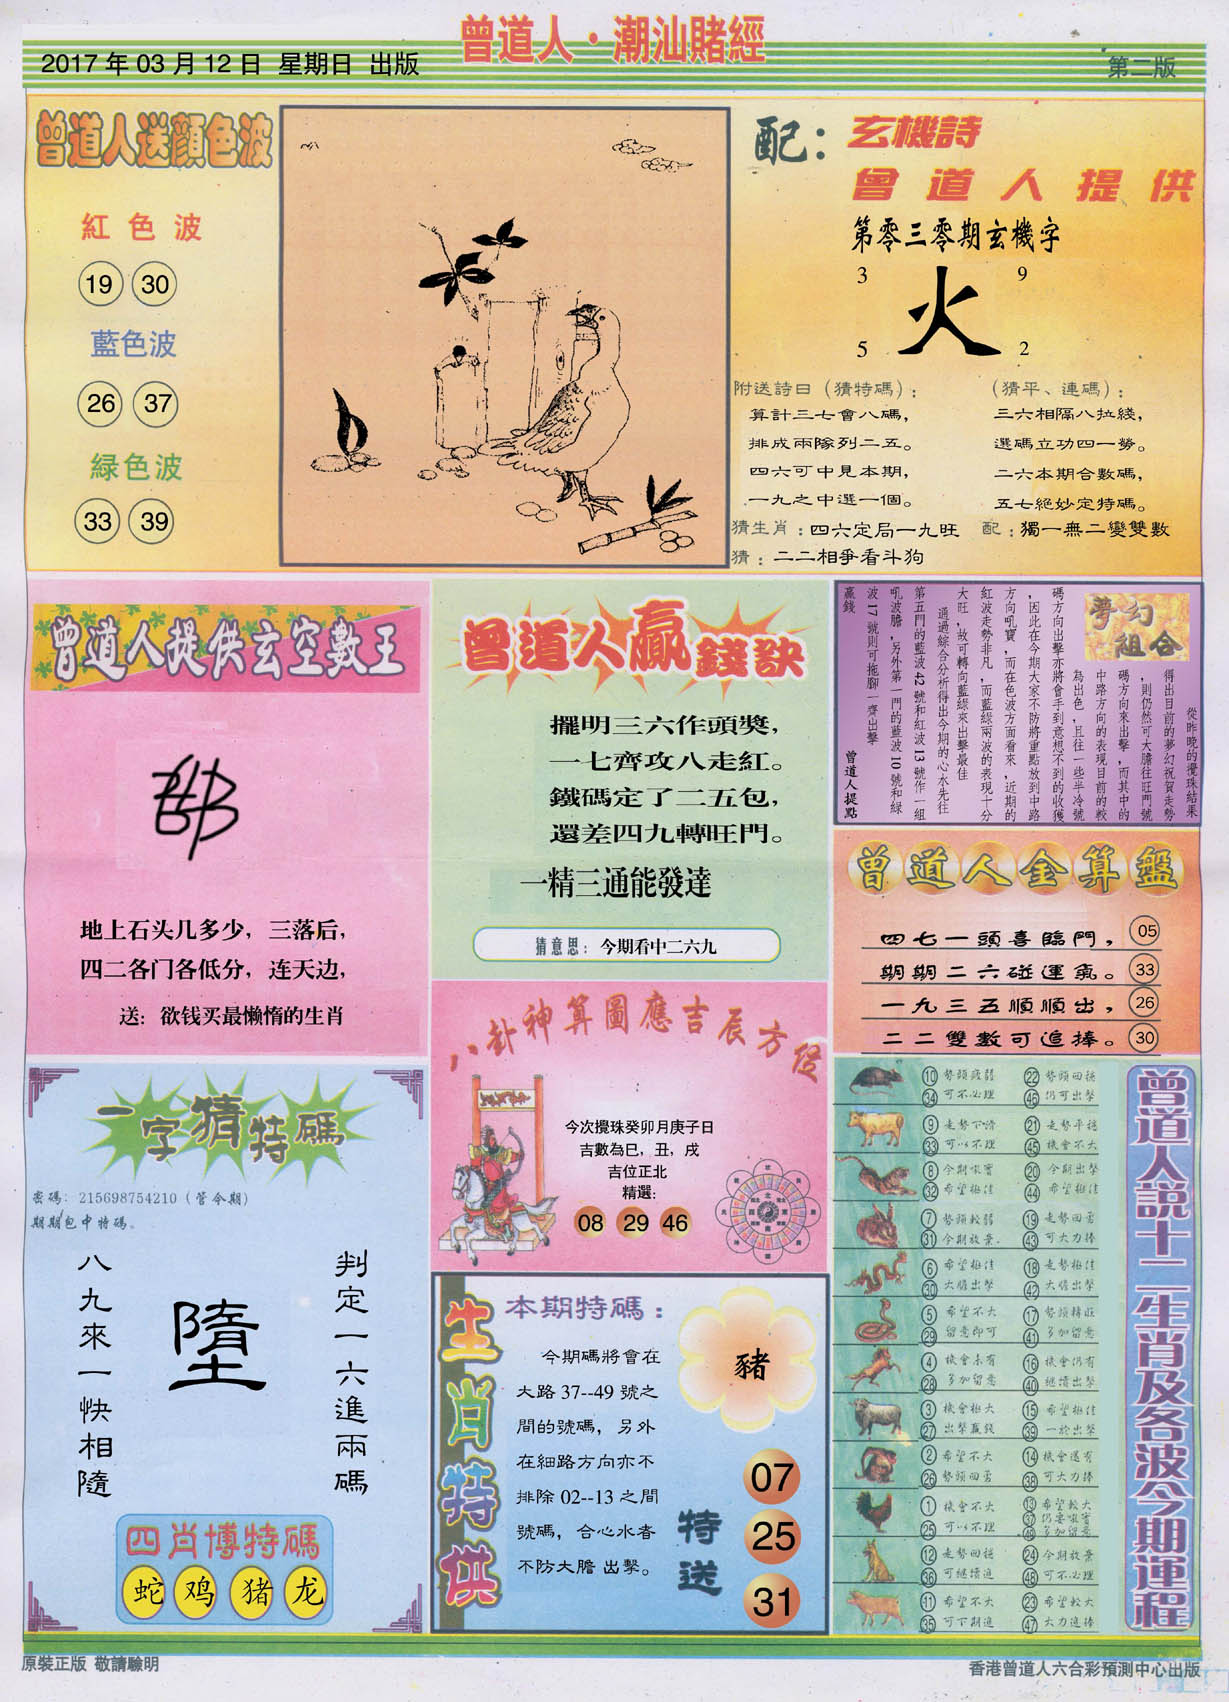 曾道人·潮汕賭經
2017 年 03 月 12 日 星期日 出版
第二版
曾道人送顏色波
紅色波
19 30
藍色波
26 37
緑色波
33 39
配：玄機詩
曾道人提供
第零三零期玄機字
3 9
火
5 2
附送詩曰（猜特碼）：
算計三七會八碼，
排成兩隊列二五。
四六可中見本期，
一九之中選一個。
（猜平、連碼）：
三六相隔八拉綫，
選碼立功四一勞。
二六本期合數碼，
五七絕妙定特碼。
猜生肖：四六定局一九旺
配：獨一無二變雙數
猜：二二相爭看斗狗
曾道人提供玄空數王
地上石头几多少，三落后，
四二各门各低分，连天边，
送：欲钱买最懒惰的生肖
曾道人贏錢訣
擺明三六作頭獎，
一七齊攻八走紅。
鐵碼定了二五包，
還差四九轉旺門。
一精三通能發達
猜意思：今期看中二六九
夢幻
組合
從昨晚的攪珠結果
得出目前的夢幻祝賀走勢
，則仍然可大膽往旺門號
碼方向來出擊，而其中的
中路方向的表現目前的較
為出色，且往一些半冷號
碼方向出擊亦將會手到意想不到的收獲
，因此在今期大家不防將重點放到中路
方向吼寶，而在色波方面看來，近期的
紅波走勢非凡，而藍綠兩波的表現十分
大旺，故可轉向藍綠來出擊最佳
通過綜合分析得出今期的心水先往
第五門的藍波 42 號和紅波 13 號作一組
吼波膽，另外第一門的藍波 10 號和綠
波 17 號則可拖腳一齊出擊
贏錢
曾道人提點
曾道人金算盤
四七一頭喜臨門， 05
期期二六碰運氣。 33
一九三五順順出， 26
二二雙數可追捧。 30
八卦神算圖應吉辰方位
今次攪珠癸卯月庚子日
吉數為巳，丑，戌
吉位正北
精選：
08 29 46
一字猜特碼
密碼：215698754210（管令期）
期期包中特碼。
判定一六進兩碼
墮
八九來一快相隨
四肖博特碼
蛇 鸡 猪 龙
生肖特供
本期特碼：
今期碼將會在
大路 37--49 號之
間的號碼，另外
在細路方向亦不
排除 02--13 之間
號碼，合心水者
不防大膽 出擊。
豬
特送
07
25
31
曾道人說十二生肖及各波今期運程
10 34 勢頭疲弱 可不必理 22 46 勢頭回穩 仍可出擊
9 33 走勢下滑 可以不理 21 45 走勢平穩 機會不大
8 32 今期吼寶 希望極佳 20 44 今期出擊 希望極佳
7 31 勢頭較弱 今期放棄. 19 43 走勢回勇 可大力捧
6 30 希望極佳 大膽出擊 18 42 走勢極佳 大膽出擊
5 29 希望不大 留意即可 17 41 勢頭轉旺 多加留意
4 28 機會未有 多加留意 16 40 機會仍有 繼續出擊
3 27 機會極大 出擊贏錢 15 39 希望極佳 一於出擊
2 26 希望不大 勢頭回勇 14 38 機會還有 可大力捧
1 25 機會不大 可以不理 13 37 49 希望較大 仍要吼寶 多加留意
12 36 走勢回穩 可繼續追 24 48 今期放棄 可不必理
11 35 希望不大 可下期追 23 47 希望較大 大力追捧
原裝正版 敬請驗明
香港曾道人六合彩預測中心出版